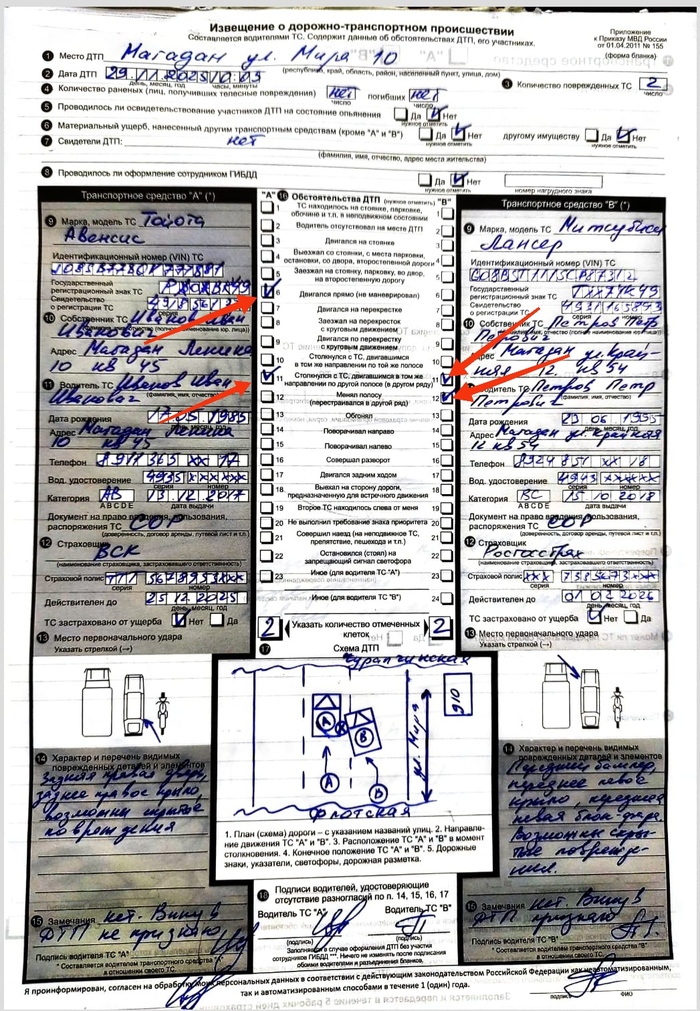 Извещение о дорожно-транспортном происшествии
Составляется водителями ТС. Содержит данные об обстоятельствах ДТП, его участниках.
Приложение
к Приказу МВД России
от 01.04.2011 № 155
(форма бланка)
1 Место ДТП Магадан ул. Мира 10
(республика, край, область, район, населенный пункт, улица, дом)
2 Дата ДТП 29.11.2025 10:03
день, месяц, год часы, минуты
3 Количество поврежденных ТС 2
число
4 Количество раненых (лиц, получивших телесные повреждения) нет погибших нет
число число
5 Проводилось ли освидетельствование участников ДТП на состояние опьянения Да Нет
нужное отметить
6 Материальный ущерб, нанесенный другим транспортным средствам (кроме "А" и "В") Да Нет другому имуществу Да Нет
нужное отметить нужное отметить
7 Свидетели ДТП: нет
(фамилия, имя, отчество, адрес места жительства)
8 Проводилось ли оформление сотрудником ГИБДД Да Нет
нужное отметить номер нагрудного знака
Транспортное средство "А" (*)
9 Марка, модель ТС Тойота
Авенсис
Идентификационный номер (VIN) ТС
Государственный
регистрационный знак ТС
Свидетельство
о регистрации ТС
серия номер
10 Собственник ТС Иванов Иван
Иванович
Адрес Магадан Ленина
10 кв 45
11 Водитель ТС Иванов Иван
Иванович (фамилия, имя, отчество)
Дата рождения 1985
день, месяц, год
Адрес Магадан Ленина
10 кв 45
Телефон 8911 363 xx 17
Вод. удостоверение 4935 xxxxxx
серия номер
Категория АВ 13.12.2017
A B C D E дата выдачи
Документ на право владения, пользования,
распоряжения ТС СОР
(доверенность, договор аренды, путевой лист и т.п.)
12 Страховщик
ВСК
(наименование страховщика, застраховавшего ответственность)
Страховой полис ТТТ
серия номер
Действителен до 25 12 2025
день, месяц, год
ТС застраховано от ущерба Нет Да
13 Место первоначального удара
Указать стрелкой (→)
14 Характер и перечень видимых
поврежденных деталей и элементов
задняя правая дверь,
заднее правое крыло,
возможны скрытые
повреждения
15 Замечания нет. Вину в
ДТП не признаю
Подпись водителя ТС "А"
* Составляется водителем транспортного средства "А"
в отношении своего ТС.
"А" 16 Обстоятельства ДТП (нужное отметить) "В"
1 ТС находилось на стоянке, парковке,
обочине и т.п. в неподвижном состоянии 1
2 Водитель отсутствовал на месте ДТП 2
3 Двигался на стоянке 3
4 Выезжал со стоянки, с места парковки,
остановки, со двора, второстепенной дороги 4
5 Заезжал на стоянку, парковку, во двор,
на второстепенную дорогу 5
6 Двигался прямо (не маневрировал) 6
7 Двигался на перекрестке 7
8 Заезжал на перекресток
с круговым движением 8
9 Двигался по перекрестку
с круговым движением 9
10 Столкнулся с ТС, двигавшимся
в том же направлении по той же полосе 10
11 Столкнулся с ТС, двигавшимся в том же
направлении по другой полосе (в другом ряду) 11
12 Менял полосу
(перестраивался в другой ряд) 12
13 Обгонял 13
14 Поворачивал направо 14
15 Поворачивал налево 15
16 Совершал разворот 16
17 Двигался задним ходом 17
18 Выехал на сторону дороги,
предназначенную для встречного движения 18
19 Второе ТС находилось слева от меня 19
20 Не выполнил требование знака приоритета 20
21 Совершил наезд (на неподвижное ТС,
препятствие, пешехода и т.п.) 21
22 Остановился (стоял) на
запрещающий сигнал светофора 22
23 Иное (для водителя ТС "А") 23
24 Иное (для водителя ТС "В") 24
2 Указать количество отмеченных
клеток 2
17 Схема ДТП
А
В
А
В
ул. Мира
д10
Флотская
1. План (схема) дороги – с указанием названий улиц. 2. Направле-
ние движения ТС "А" и "В". 3. Расположение ТС "А" и "В" в момент
столкновения. 4. Конечное положение ТС "А" и "В". 5. Дорожные
знаки, указатели, светофоры, дорожная разметка.
18 Подписи водителей, удостоверяющие
отсутствие разногласий по п. 14, 15, 16, 17
Водитель ТС "А" Водитель ТС "В"
(подпись) (подпись)
Заполняется в случае оформления ДТП без участия
сотрудников ГИБДД *** Ничего не изменять после подписания
обоими водителями и разъединения бланков.
Транспортное средство "В" (*)
9 Марка, модель ТС Митсубиси
Лансер
Идентификационный номер (VIN) ТС
Государственный
регистрационный знак ТС
Свидетельство
о регистрации ТС
серия номер
10 Собственник ТС Петров Петр
Петрович
Адрес Магадан ул. Край-
няя 12 кв 54
11 Водитель ТС Петров Петр
Петрович (фамилия, имя, отчество)
Дата рождения 23 06 1955
день, месяц, год
Адрес Магадан ул. Крайняя
12 кв 54
Телефон 8924 851 xx 18
Вод. удостоверение 4943 xxxxxx
серия номер
Категория ВС 15 10 2018
A B C D E дата выдачи
Документ на право владения, пользования,
распоряжения ТС СОР
(доверенность, договор аренды, путевой лист и т.п.)
12 Страховщик
Росгосстрах
(наименование страховщика, застраховавшего ответственность)
Страховой полис ххх
серия номер
Действителен до 01 02 2026
день, месяц, год
ТС застраховано от ущерба Нет Да
13 Место первоначального удара
Указать стрелкой (→)
14 Характер и перечень видимых
поврежденных деталей и элементов
Передний бампер,
переднее левое
крыло, передняя
левая блок-фара.
Возможны скры-
тые поврежде-
ния.
15 Замечания нет. Вину в
ДТП признаю
Подпись водителя ТС "В"
* Составляется водителем транспортного средства "В"
в отношении своего ТС.
Я проинформирован, согласен на обработку моих персональных данных в соответствии с действующим законодательством Российской Федерации как неавтоматизированным,
так и автоматизированным способами в течение 1 (один) года.
подпись ФИО